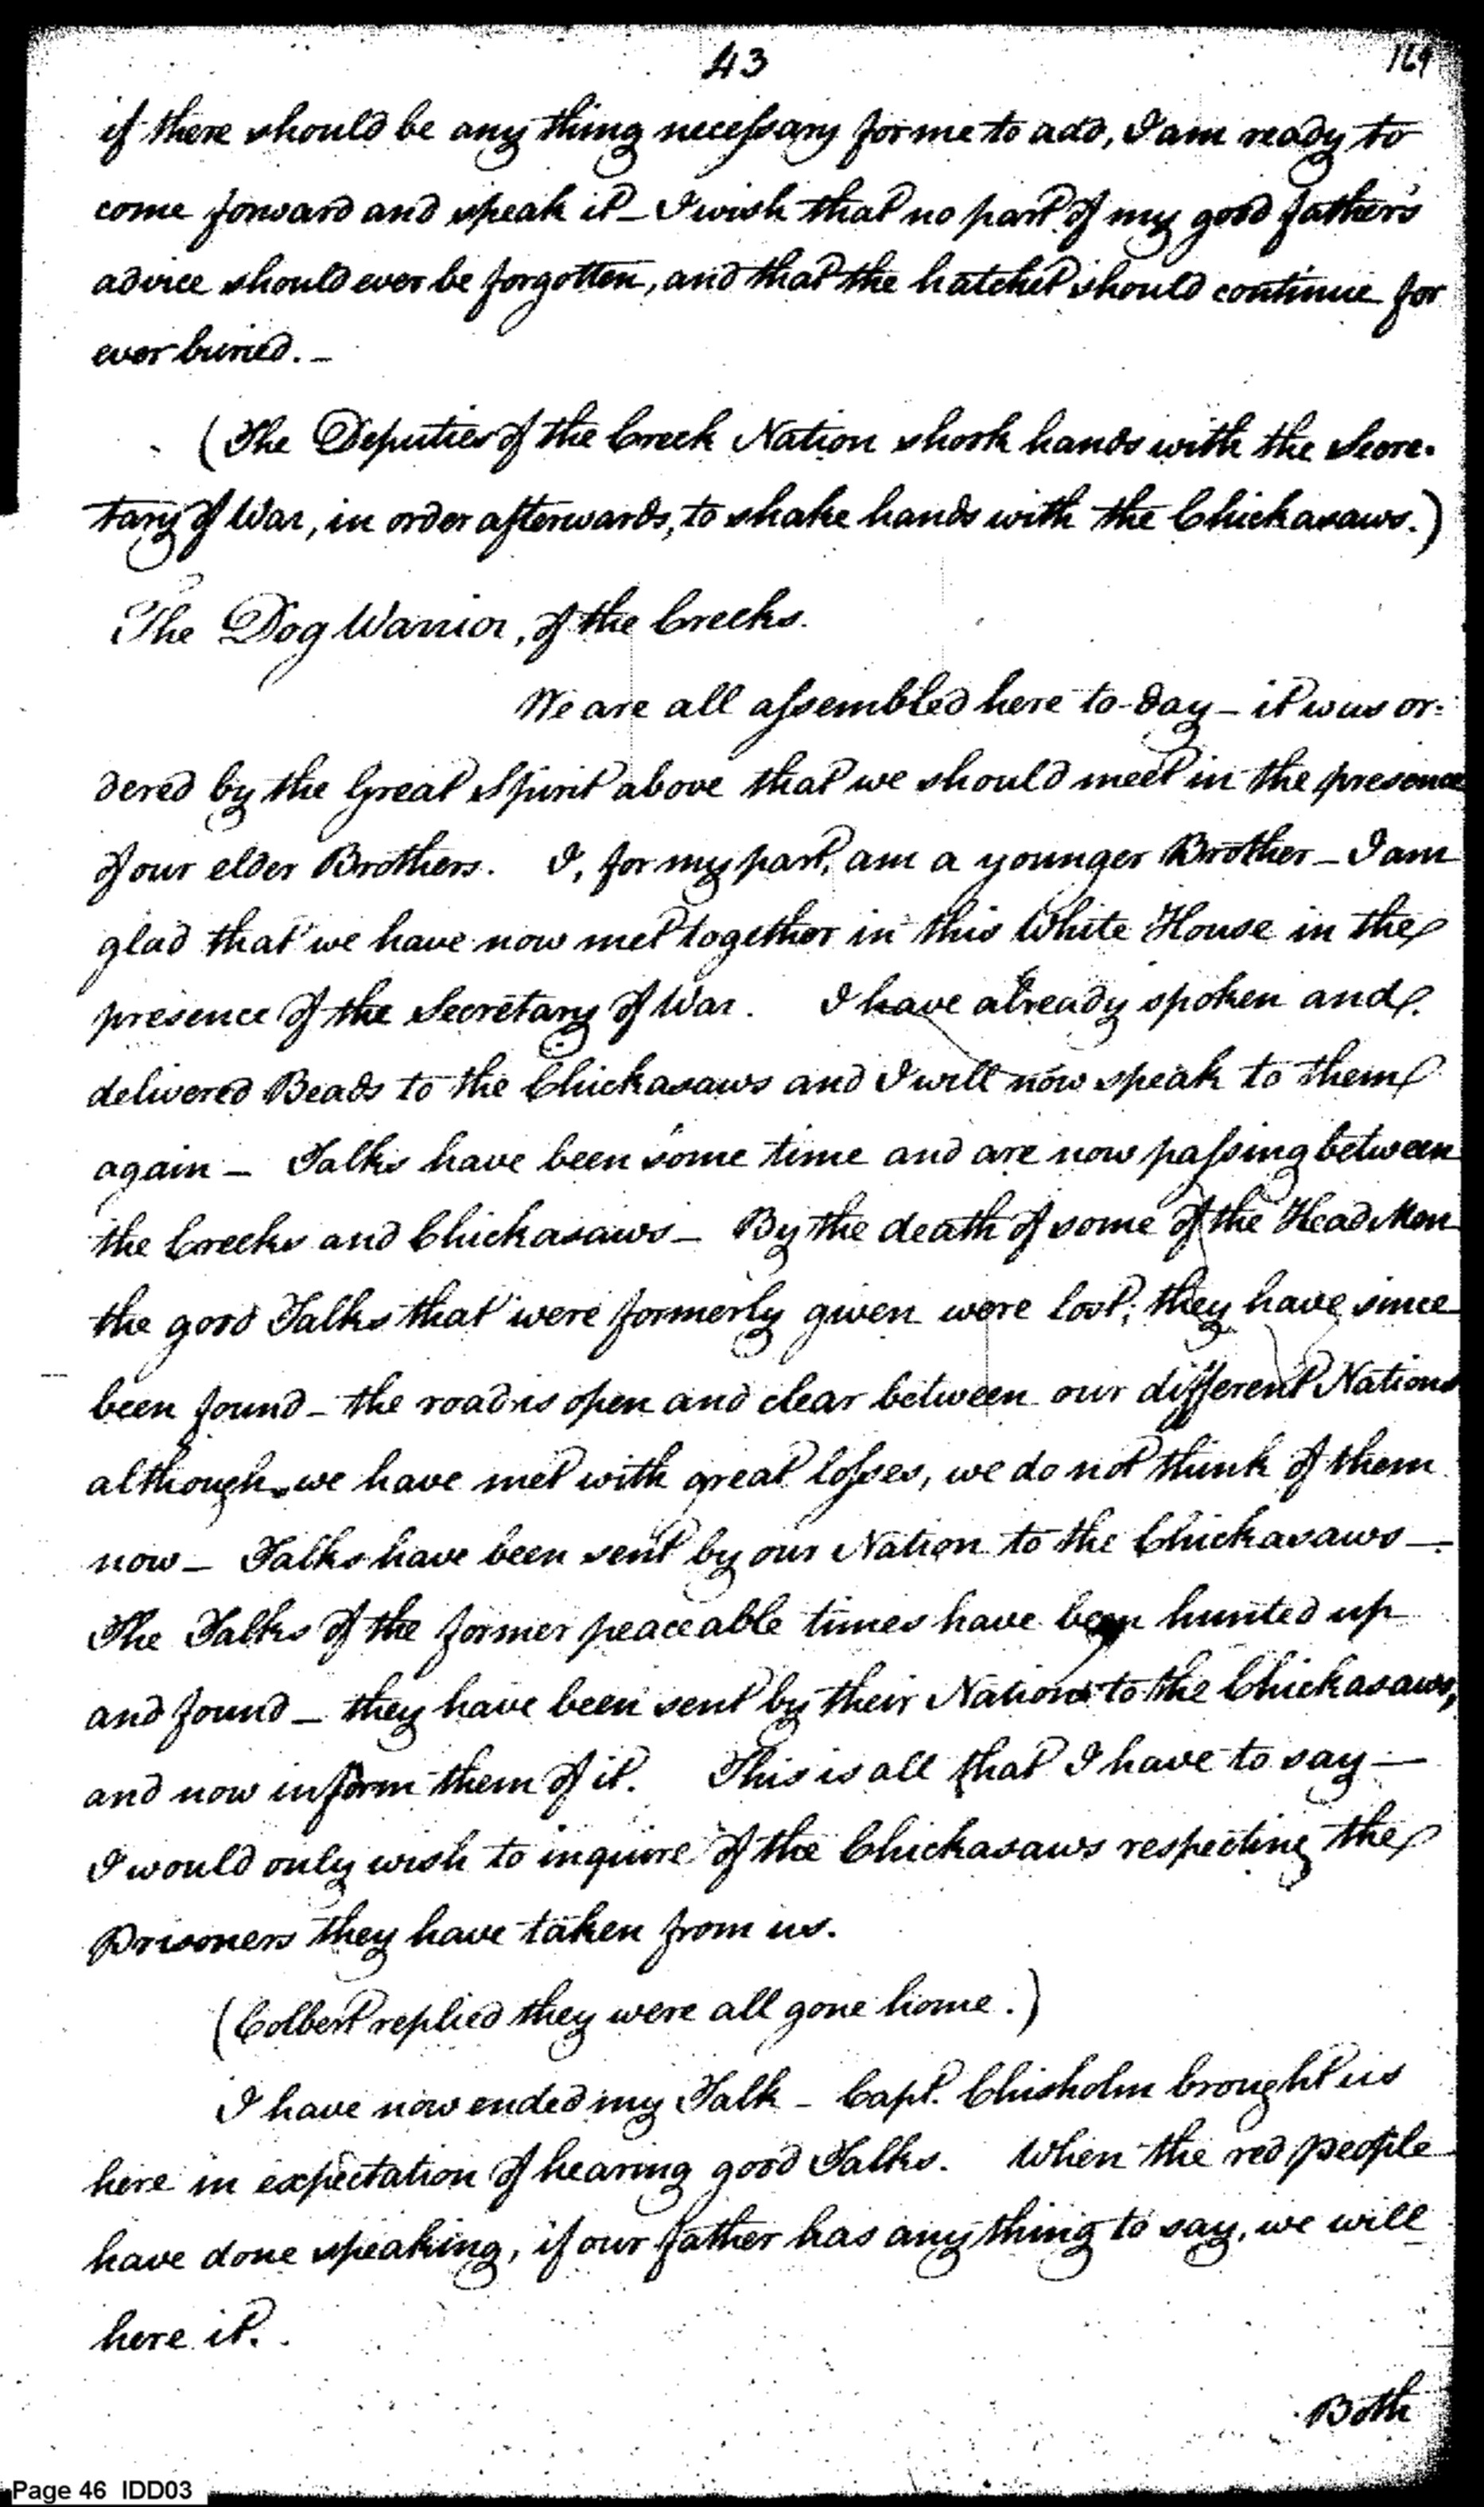 43
169
if there should be any thing necessary for me to add, I am ready to
come forward and speak it_ I wish that no part of my good father's
advice should ever be forgotten, and that the hatchet should continue for
ever buried._
(The Deputies of the Creek Nation shook hands with the Secre-
tary of War, in order afterwards, to shake hands with the Chickasaws.)
The Dog Warrior, of the Creeks.
We are all assembled here to-day_ it was or=
dered by the Great Spirit above that we should meet in the presence
of our elder Brothers. I, for my part, am a younger Brother_ I am
glad that we have now met together in this White House in the
presence of the Secretary of War. I have already spoken and
delivered Beads to the Chickasaws and I will now speak to them
again_ Talks have been some time and are now passing between
the Creeks and Chickasaws_ By the death of some of the Head Men
the good Talks that were formerly given were lost; they have since
been found_ the road is open and clear between our different Nations
although we have met with great losses, we do not think of them
now_ Talks have been sent by our Nation to the Chickasaws_.
The Talks of the former peaceable times have been hunted up
and found_ they have been sent by their Nations to the Chickasaws,
and now inform them of it. This is all that I have to say_
I would only wish to inquire of the Chickasaws respecting the
Prisoners they have taken from us.
(Colbert replied they were all gone home.)
I have now ended my Talk_ Capt. Chisholm brought us
here in expectation of hearing good Talks. When the red people
have done speaking, if our father has any thing to say, we will
here it.
Both
Page 46 IDD03